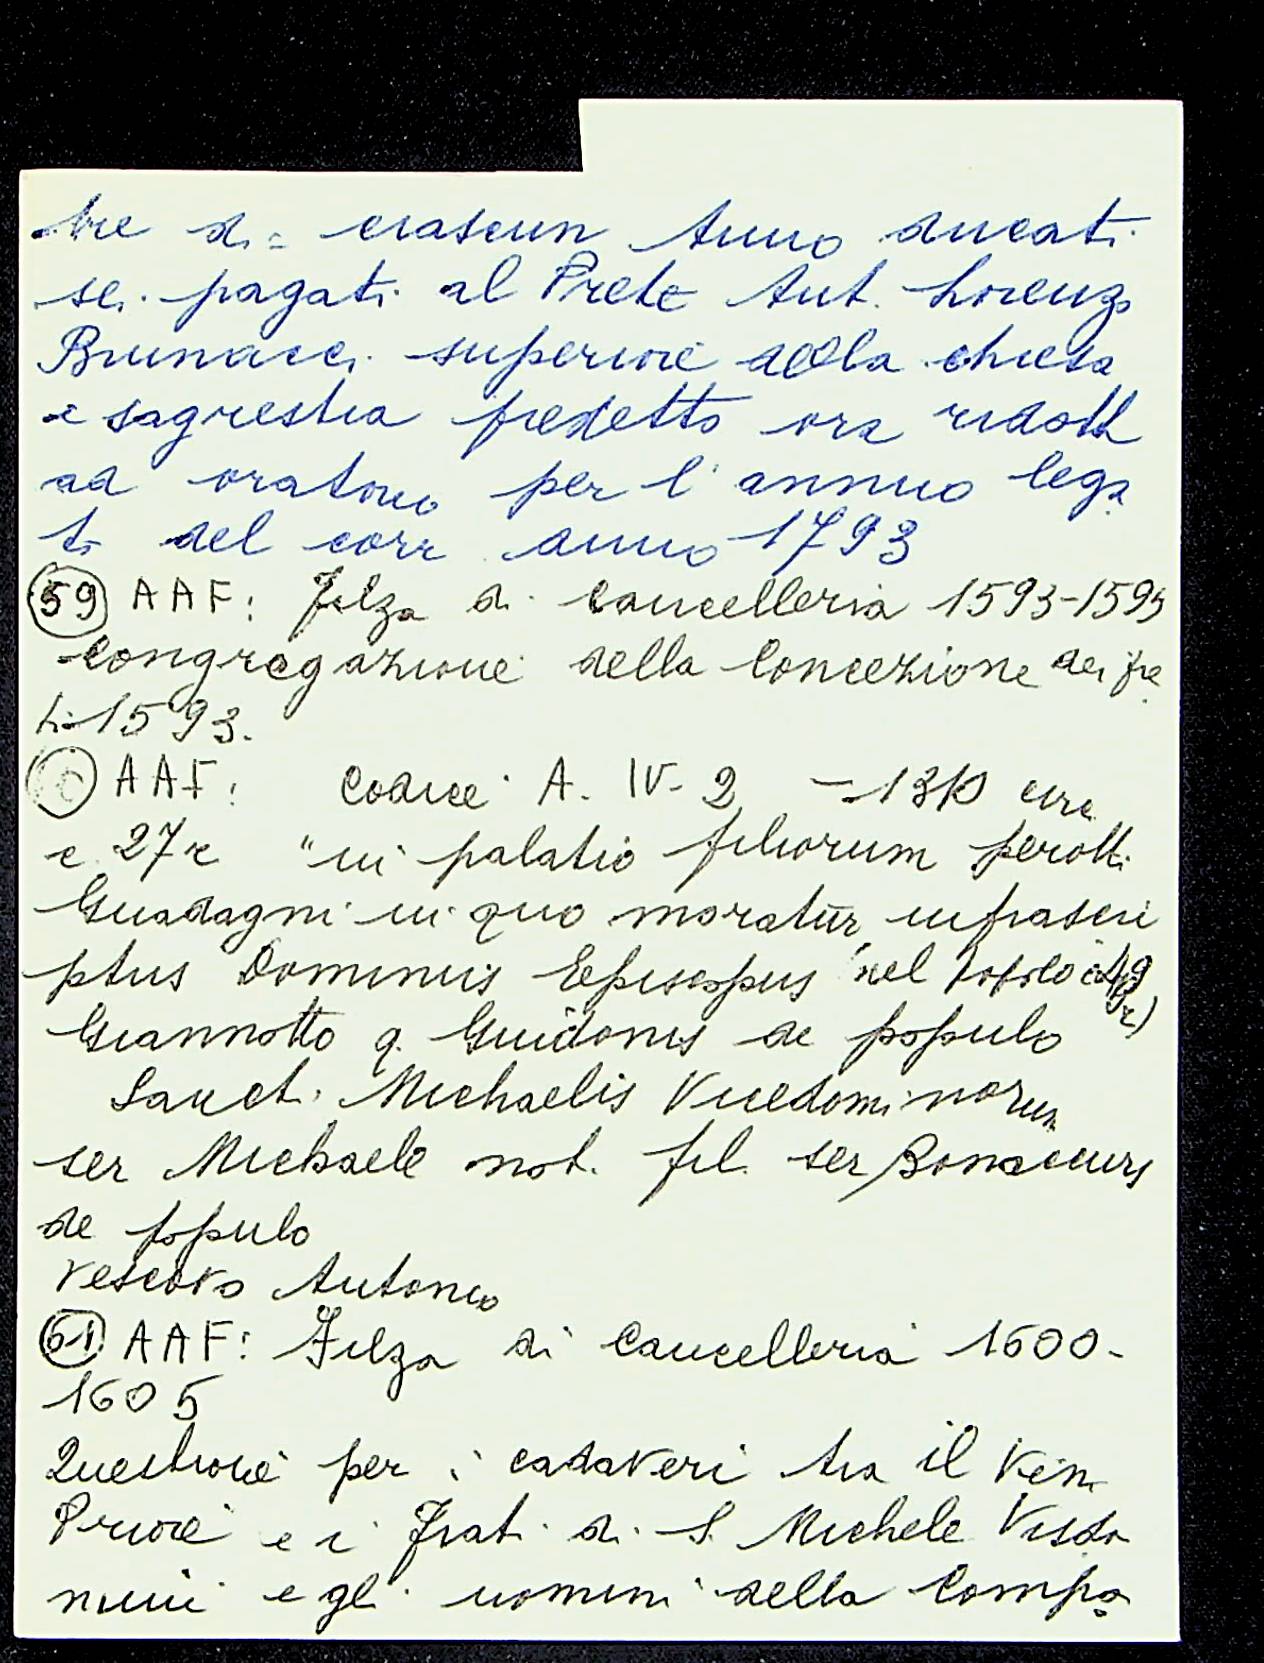 bre di = ciascun Anno ducati
sei pagati al Prete Ant. Lorenzo
Brunacci superiore della chiesa
e sagrestia predetto ora ridott
ad oratorio per l'annuo lega
to del corr anno 1793
(59) AAF: Filza di Cancelleria 1593-1595
Congregazione della Concezione dei pre
ti 1593.
AAF: Codice A. IV-2 - 1310 circa
c 27r "in palatio filiorum perotti
Guadagni in quo moratur infrascri
ptus Dominus Episcopus" nel popolo
Giannotto q. Guidonis de populo
Sancti Michaelis Vicedominorum
ser Michaele not. fil. ser Bonaccurs
de populo
vescovo Antonio
(61) AAF: Filza di Cancelleria 1600-
1605
Questione per i cadaveri tra il Ven
Priore e i Frati di S. Michele Visdo
mini e gli uomini della Compa